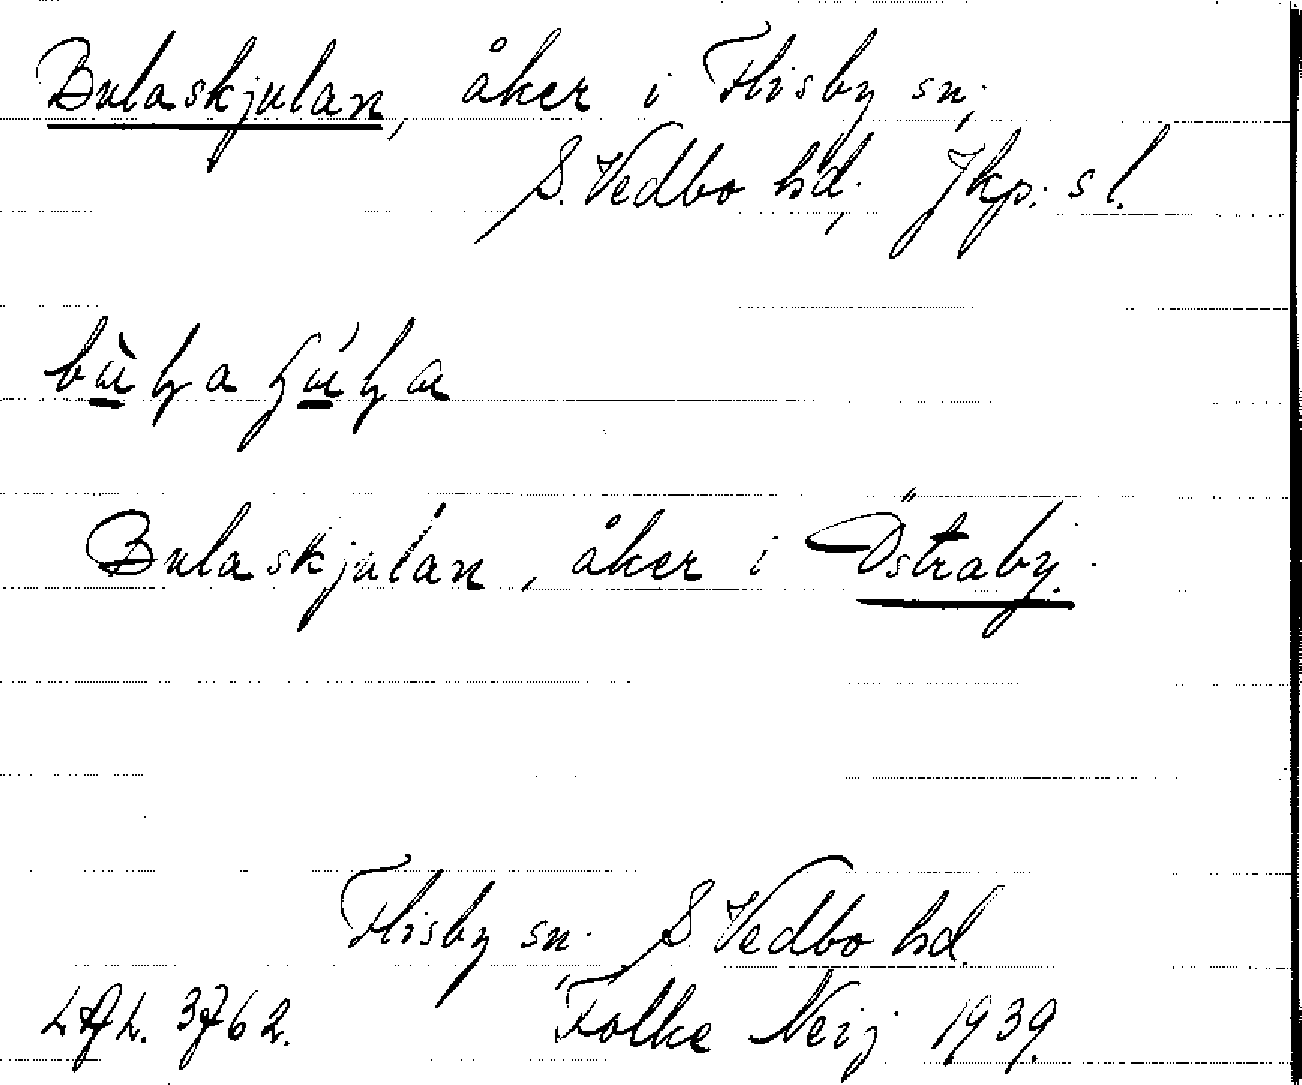 Bulaskjulan, åker i Flisby sn,
S. Vedbo hd, Jkp. sl.
Bulaskjulan, åker i Östraby.
Flisby sn. S. Vedbo hd.
3762. Folke Neij 1939.